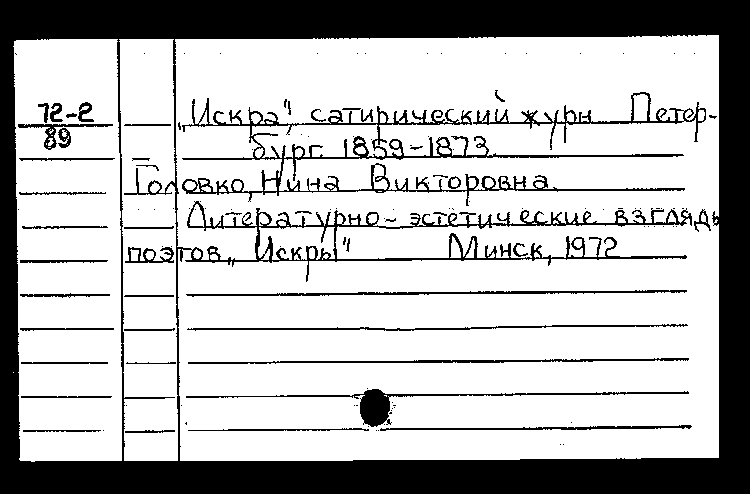 72-2
89
„Искра", сатирический журн Петер-
бург. 1859-1873.
Головко, Нина Викторовна.
Литературно-эстетические взгляды
поэтов „Искры" Минск, 1972